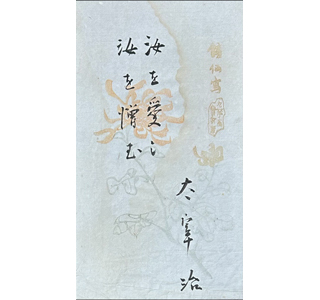 太宰治
汝を愛し
汝を憎む